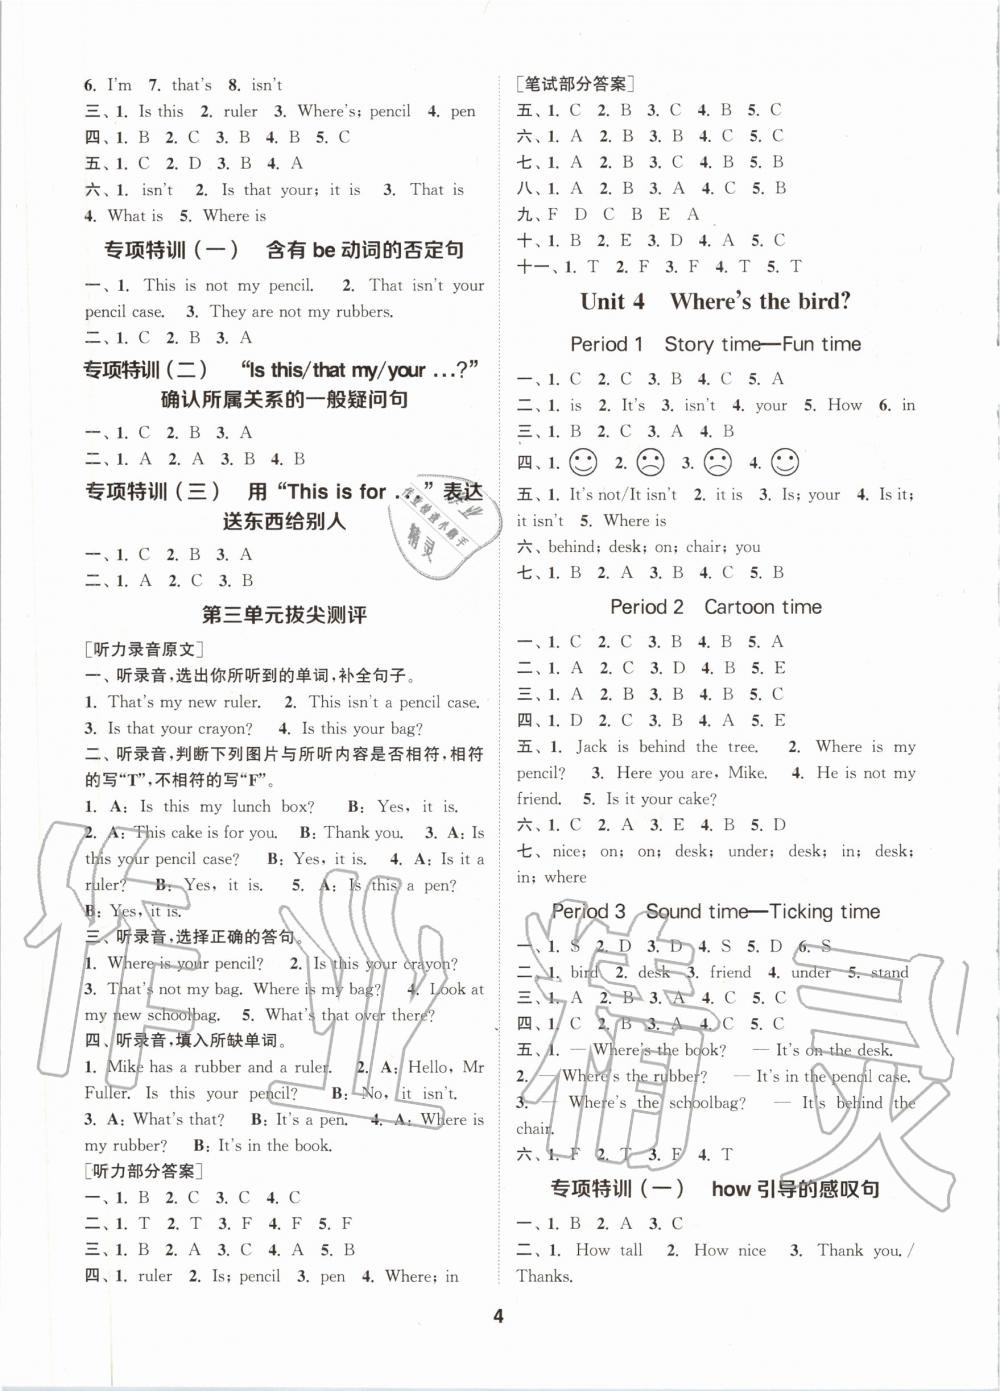 6. I'm 7. that's 8. isn't
三、1. Is this 2. ruler 3. Where's; pencil 4. pen
四、1. B 2. C 3. B 4. B 5. C
五、1. C 2. D 3. B 4. A
六、1. isn't 2. Is that your; it is 3. That is
4. What is 5. Where is
专项特训（一） 含有 be 动词的否定句
一、1. This is not my pencil. 2. That isn't your
pencil case. 3. They are not my rubbers.
二、1. C 2. B 3. A
专项特训（二） “Is this/that my/your ...?”
确认所属关系的一般疑问句
一、1. C 2. B 3. A
二、1. A 2. A 3. B 4. B
专项特训（三） 用“This is for ...”表达
送东西给别人
一、1. C 2. B 3. A
二、1. A 2. C 3. B
第三单元拔尖测评
[听力录音原文]
一、听录音,选出你所听到的单词,补全句子。
1. That's my new ruler. 2. This isn't a pencil case.
3. Is that your crayon? 4. Is this your bag?
二、听录音,判断下列图片与所听内容是否相符,相符
的写“T”,不相符的写“F”。
1. A: Is this my lunch box? B: Yes, it is.
2. A: This cake is for you. B: Thank you. 3. A: Is
this your pencil case? B: Yes, it is. 4. A: Is it a
ruler? B: Yes, it is. 5. A: Is this a pen?
B: Yes, it is.
三、听录音,选择正确的答句。
1. Where is your pencil? 2. Is this your crayon?
3. That's not my bag. Where is my bag? 4. Look at
my new schoolbag. 5. What's that over there?
四、听录音,填入所缺单词。
1. Mike has a rubber and a ruler. 2. A: Hello, Mr
Fuller. Is this your pencil? B: No, it isn't.
3. A: What's that? B: It's a pen. 4. A: Where is
my rubber? B: It's in the book.
[听力部分答案]
一、1. B 2. C 3. C 4. C
二、1. T 2. T 3. F 4. F 5. F
三、1. B 2. A 3. C 4. A 5. B
四、1. ruler 2. Is; pencil 3. pen 4. Where; in
[笔试部分答案]
五、1. C 2. B 3. C 4. B 5. C
六、1. A 2. B 3. B 4. C 5. C
七、1. A 2. B 3. C 4. B 5. B
八、1. A 2. B 3. A 4. C 5. B
九、F D C B E A
十、1. B 2. E 3. D 4. A 5. C
十一、1. T 2. F 3. F 4. T 5. T
Unit 4 Where's the bird?
Period 1 Story time—Fun time
一、1. C 2. C 3. B 4. C 5. A
二、1. is 2. It's 3. isn't 4. your 5. How 6. in
三、1. B 2. C 3. A 4. B
四、1. 2. 3. 4.
五、1. It's not/It isn't 2. it is 3. Is; your 4. Is it;
it isn't 5. Where is
六、behind; desk; on; chair; you
七、1. B 2. A 3. B 4. C 5. B
Period 2 Cartoon time
一、1. C 2. C 3. B 4. B 5. A
二、1. A 2. C 3. D 4. B 5. E
三、1. A 2. B 3. B 4. B 5. C
四、1. D 2. C 3. B 4. A 5. E
五、1. Jack is behind the tree. 2. Where is my
pencil? 3. Here you are, Mike. 4. He is not my
friend. 5. Is it your cake?
六、1. C 2. A 3. E 4. B 5. D
七、nice; on; on; desk; under; desk; in; desk;
in; where
Period 3 Sound time—Ticking time
一、1. S 2. D 3. D 4. S 5. D 6. S
二、1. bird 2. desk 3. friend 4. under 5. stand
三、1. A 2. B 3. A 4. C 5. A
四、1. C 2. B 3. A 4. C 5. C
五、1. — Where's the book? — It's on the desk.
2. — Where's the rubber? — It's in the pencil case.
3. — Where's the schoolbag? — It's behind the
chair.
六、1. F 2. F 3. F 4. T
专项特训（一） how 引导的感叹句
一、1. B 2. A 3. C
二、1. How tall 2. How nice 3. Thank you. /
Thanks.
4
作业精灵
作业检查小助手
精灵